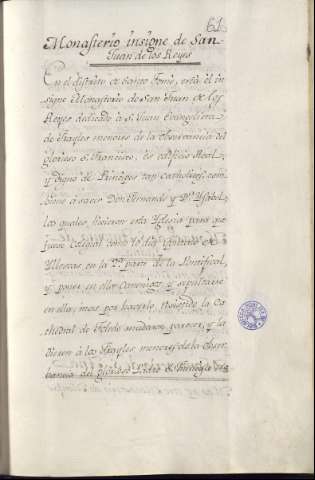 61
Monasterio insigne de San
Juan de los Reyes
En el distrito de Santo Tome, está el in
signe Monasterio de San Juan de los
Reyes dedicado a S. Juan Evangelista
de frayles menores de la observancia del
glorioso S. Francisco, es edificio Real,
y digno de Principes tan catholicos como
fueron Don Fernando y Dª Ysabel,
los quales hicieron esta Yglesia para que
fuese Colegial como lo dice
Yllescas, en la 2ª parte de la Pontifical,
y poner en ella Canonigos y sepultarse
en ella, mas por haverlo resistido la Ca
thedral de Toledo mudaron parecer, y la
dieron á los frayles menores de la obser
bancia del glorioso Padre S. Francisco